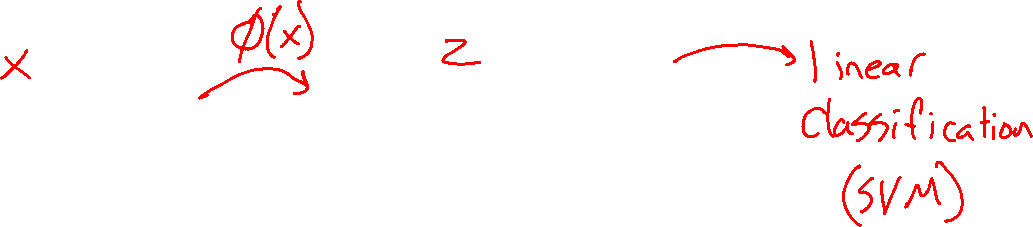 x ϕ(x) z linear
classification
(SVM)